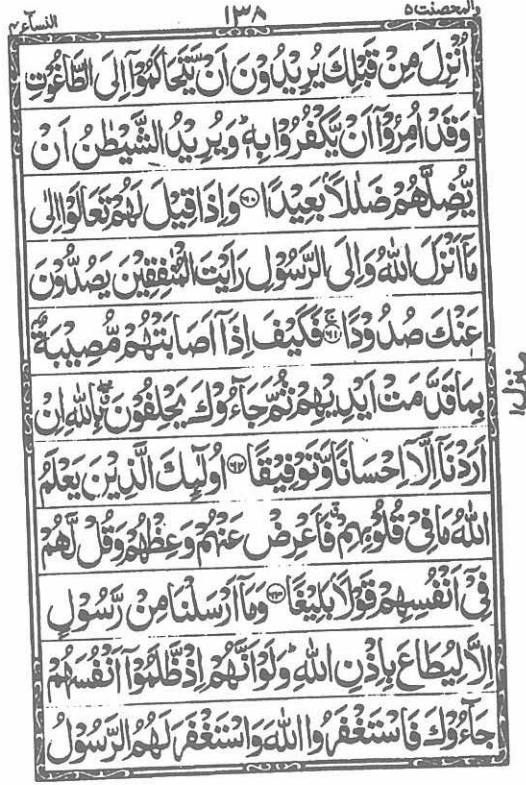 والمحصنت ۵ ۱۳۸ النساء ۴
اُنْزِلَ مِنْ قَبْلِكَ يُرِيْدُوْنَ اَنْ يَّتَحَاكَمُوْۤا اِلَى الطَّاغُوْتِ
وَقَدْ اُمِرُوْۤا اَنْ يَّكْفُرُوْا بِهٖ ؕ وَيُرِيْدُ الشَّيْطٰنُ اَنْ
يُّضِلَّهُمْ ضَلٰلًاۢ بَعِيْدًا ﴿۶۰﴾ وَاِذَا قِيْلَ لَهُمْ تَعَالَوْا اِلٰى
مَاۤ اَنْزَلَ اللّٰهُ وَاِلَى الرَّسُوْلِ رَاَيْتَ الْمُنٰفِقِيْنَ يَصُدُّوْنَ
عَنْكَ صُدُوْدًا ﴿۶۱﴾ۚ فَكَيْفَ اِذَاۤ اَصَابَتْهُمْ مُّصِيْبَةٌۢ
بِمَا قَدَّمَتْ اَيْدِيْهِمْ ثُمَّ جَآءُوْكَ يَحْلِفُوْنَ ۖ بِاللّٰهِ اِنْ
اَرَدْنَاۤ اِلَّاۤ اِحْسَانًا وَّتَوْفِيْقًا ﴿۶۲﴾ اُولٰٓئِكَ الَّذِيْنَ يَعْلَمُ
اللّٰهُ مَا فِيْ قُلُوْبِهِمْ ۗ فَاَعْرِضْ عَنْهُمْ وَعِظْهُمْ وَقُلْ لَّهُمْ
فِيْۤ اَنْفُسِهِمْ قَوْلًاۢ بَلِيْغًا ﴿۶۳﴾ وَمَاۤ اَرْسَلْنَا مِنْ رَّسُوْلٍ
اِلَّا لِيُطَاعَ بِاِذْنِ اللّٰهِ ؕ وَلَوْ اَنَّهُمْ اِذْ ظَّلَمُوْۤا اَنْفُسَهُمْ
جَآءُوْكَ فَاسْتَغْفَرُوا اللّٰهَ وَاسْتَغْفَرَ لَهُمُ الرَّسُوْلُ
منزل ۱